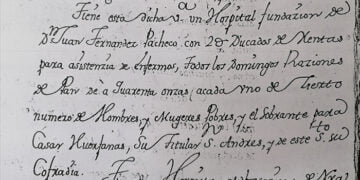 Tiene esta dicha vª un Hospital fundazion de
Dn Juan Fernandez Pacheco, con 2U Ducados de Rentas
para asistenzia de enfermos, todos los Domingos Raziones
de Pan de à quarenta onzas, acada vno de Zierto
numero de Hombres, y Mugeres Pobres, y el sobrante para
Casar Huerfanas, su Titular S. Andres, y de este Sto su
Cofradia.